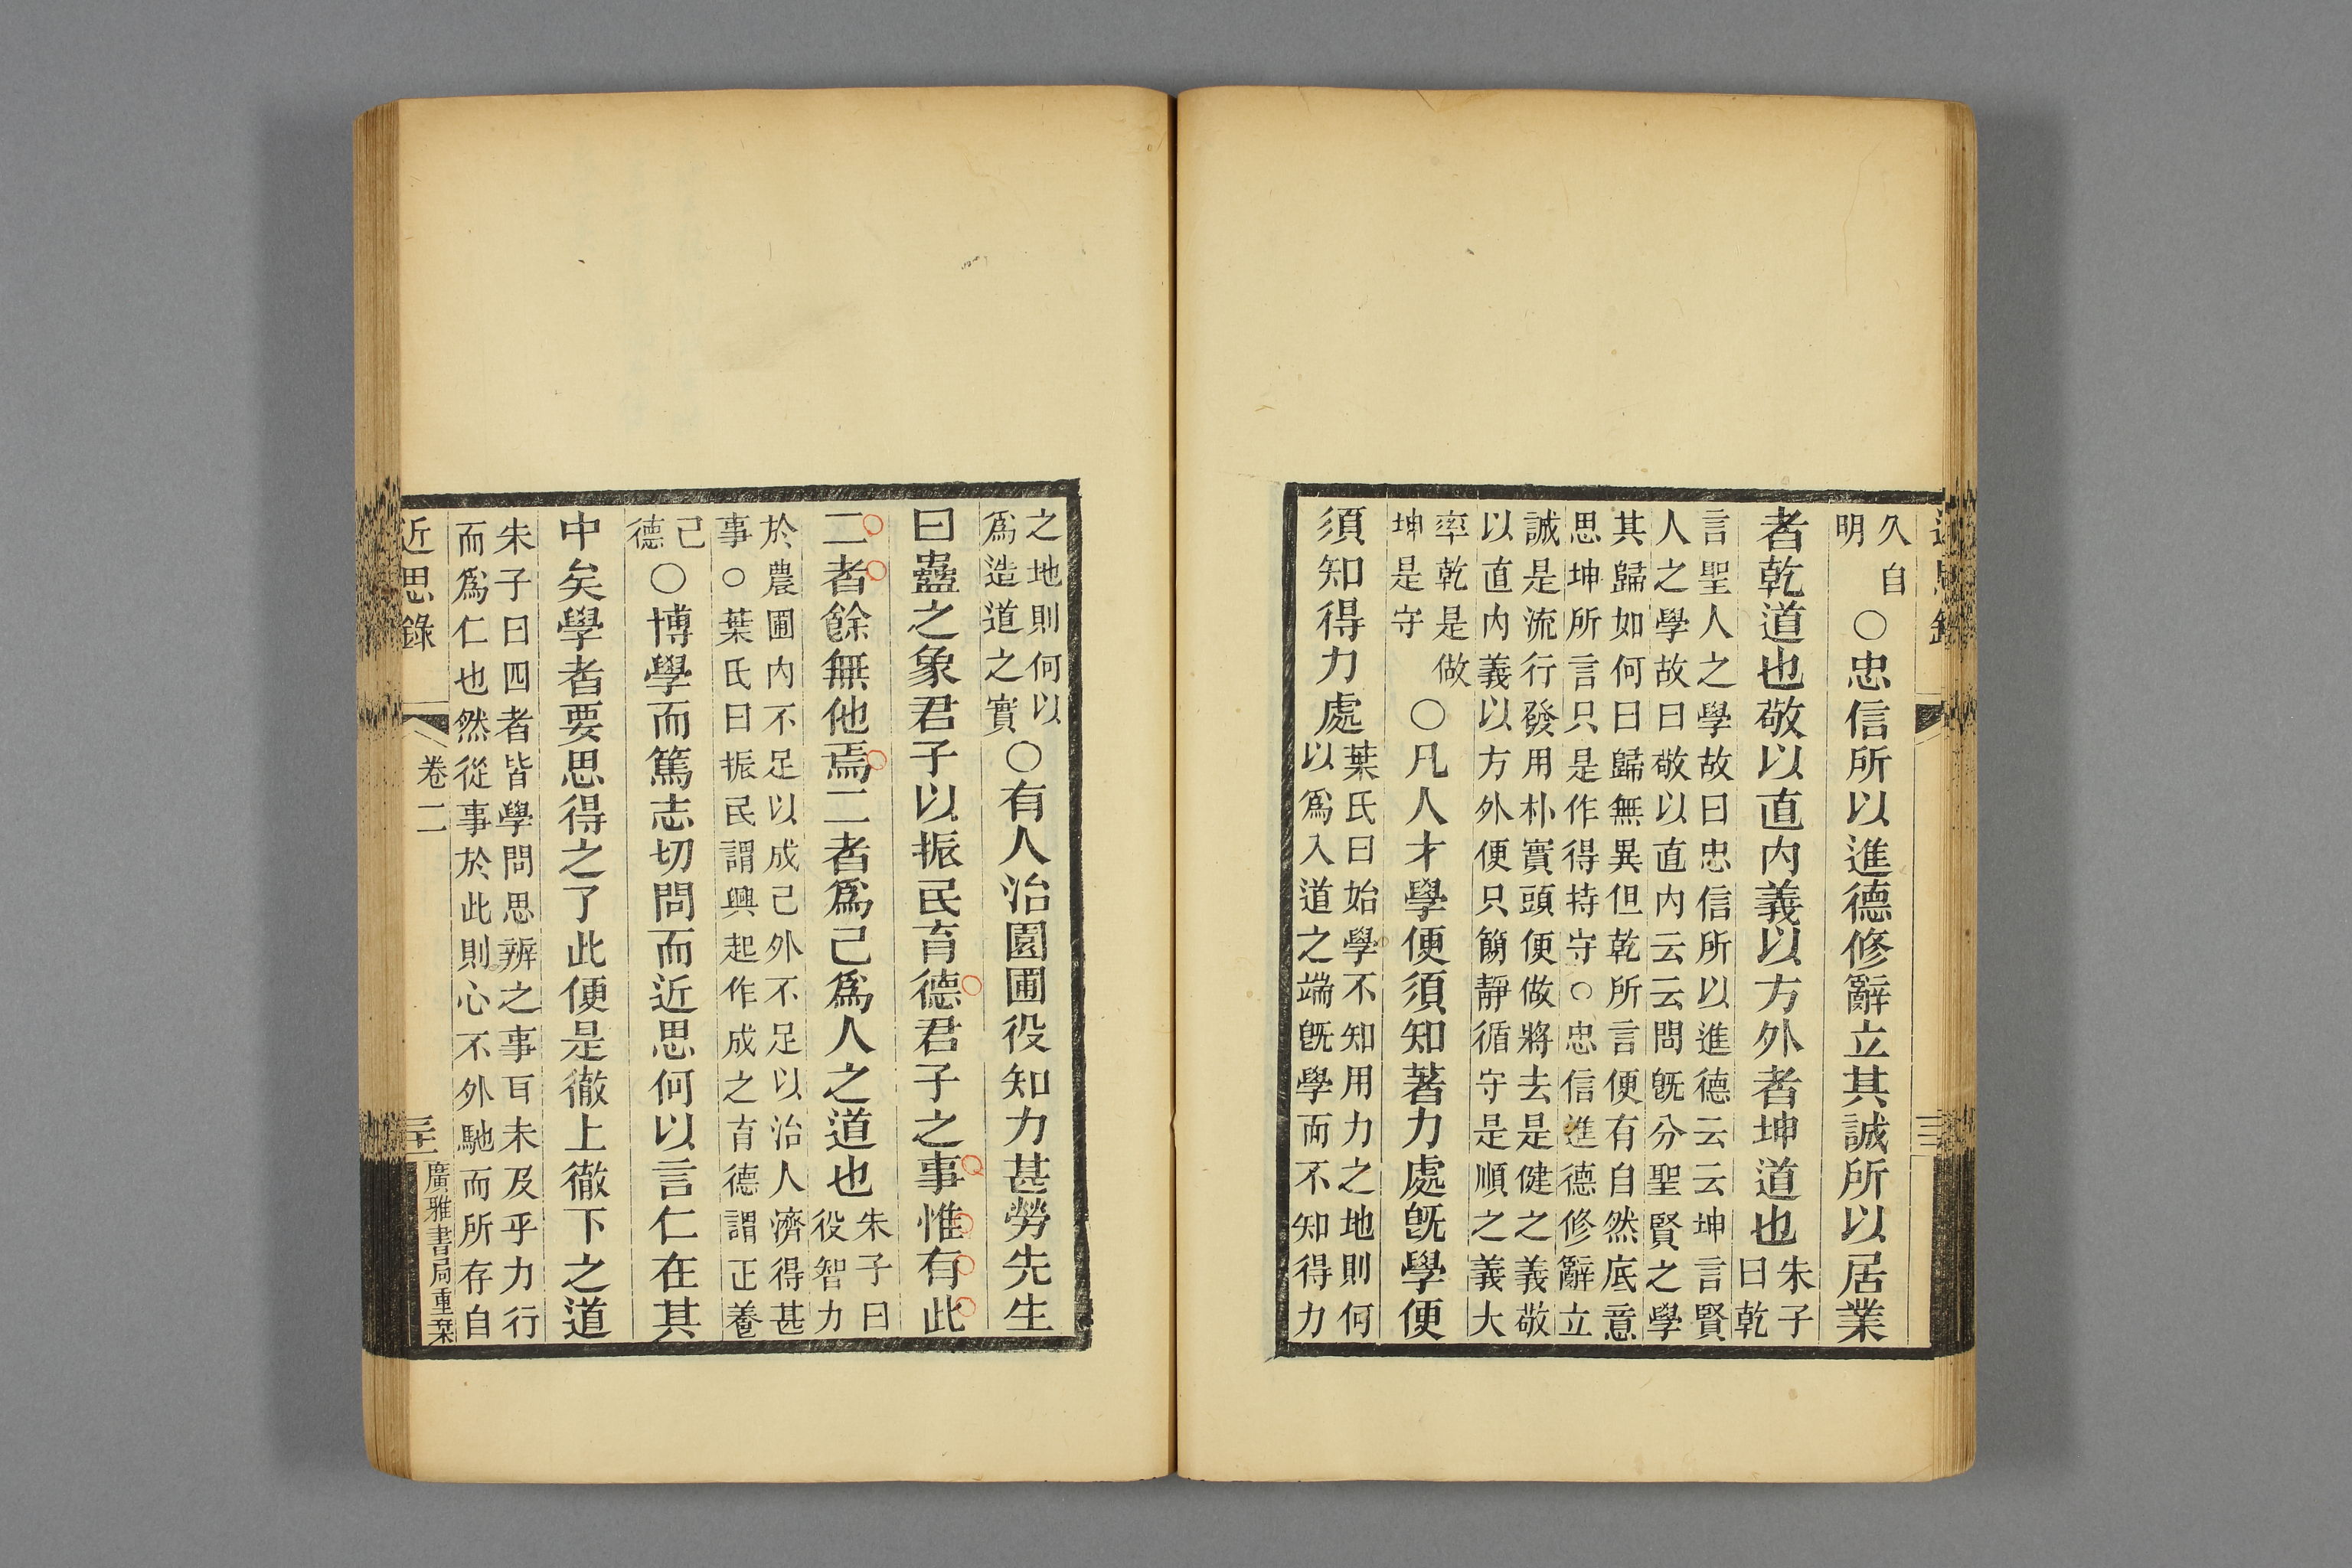 久自明○忠信所以進德修辭立其誠所以居業
者乾道也敬以直內義以方外者坤道也朱子曰乾
言聖人之學故曰忠信所以進德云云坤言賢
人之學故曰敬以直內云云問旣分聖賢之學
其歸如何曰歸無異但乾所言便有自然底意
思坤所言只是作得持守○忠信進德修辭立
誠是流行發用朴實頭便做將去是健之義敬
以直內義以方外便只簡靜循守是順之義大
率乾是做坤是守○凡人才學便須知著力處旣學便
須知得力處葉氏曰始學不知用力之地則何以爲入道之端旣學而不知得力
之地則何以爲造道之實○有人治園圃役知力甚勞先生
曰蠱之象君子以振民育德君子之事惟有此
二者餘無他焉二者爲己爲人之道也朱子曰役智力
於農圃內不足以成己外不足以治人濟得甚
事○葉氏曰振民謂興起作成之育德謂正養
己德○博學而篤志切問而近思何以言仁在其
中矣學者要思得之了此便是徹上徹下之道
朱子曰四者皆學問思辨之事耳未及乎力行
而爲仁也然從事於此則心不外馳而所存自
近思錄 卷二 廣雅書局重栞